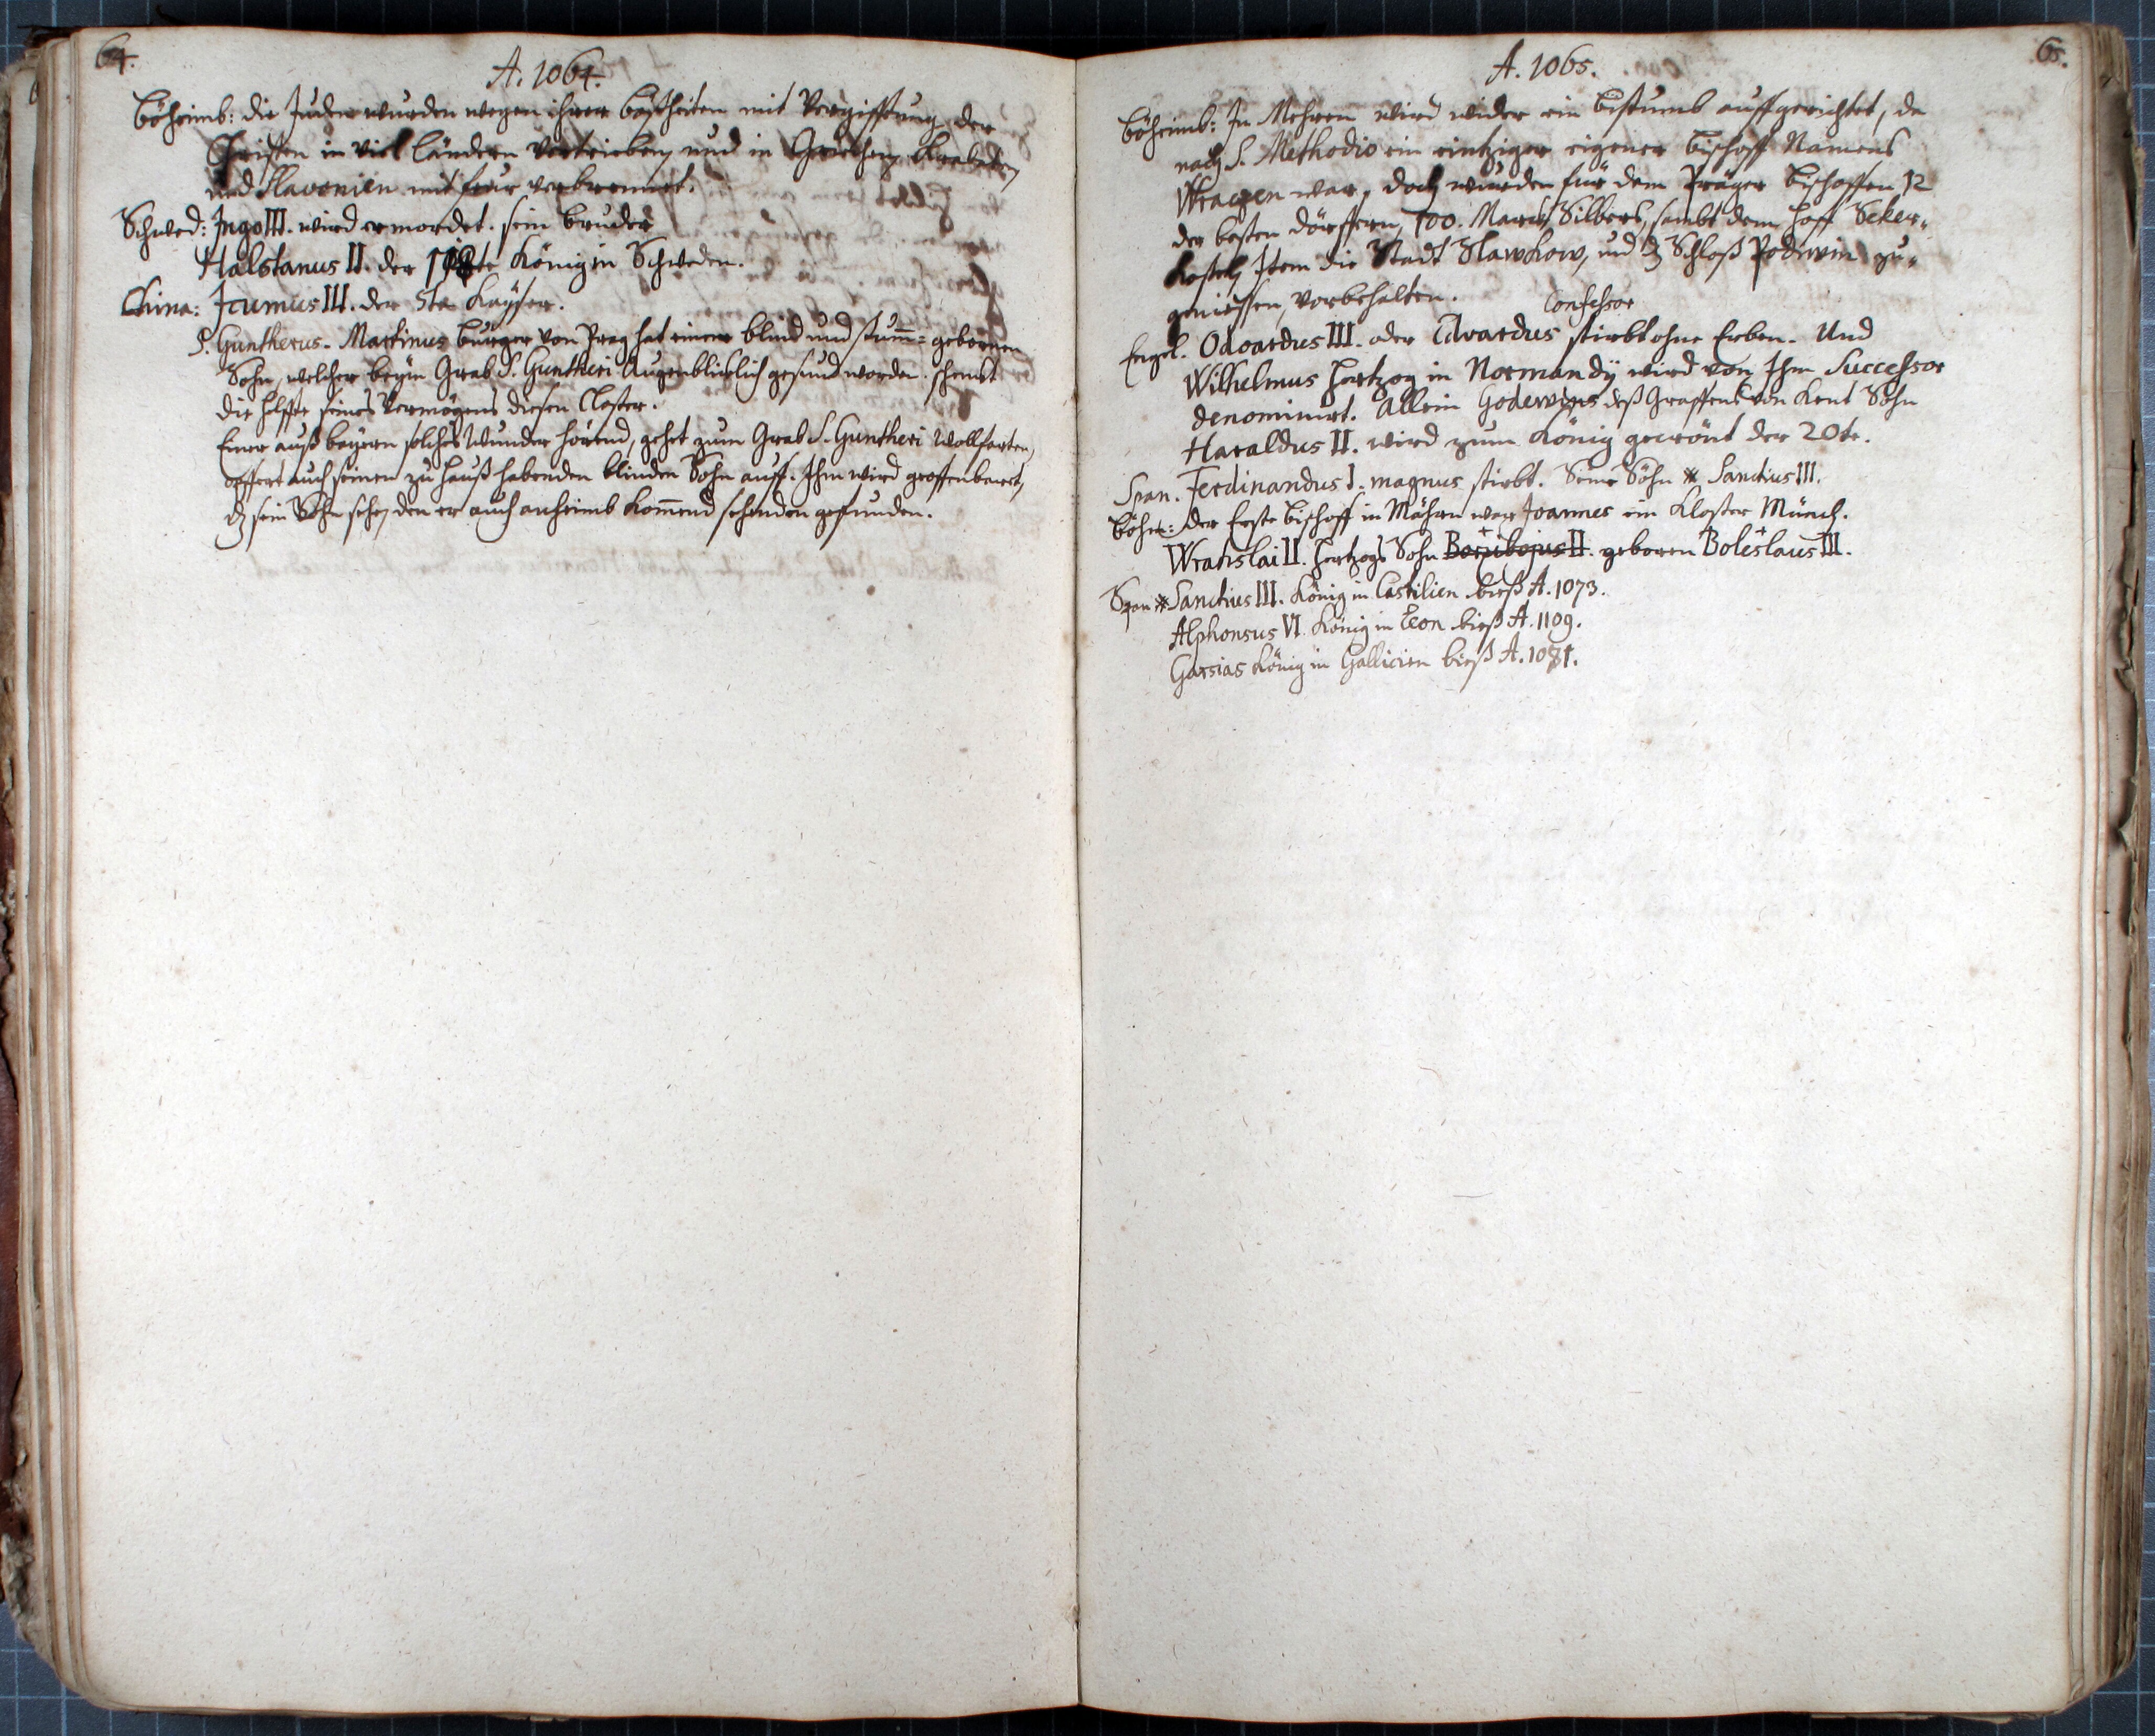 64.
A. 1064.
Böheimb: die Juden wurden wegen ihrer boßheiten mit Vergifftung der
Christen in viel Ländern vertrieben, und in Griechen,
und Slavonien mit feür verbrennet.
Schwed: Ingo III. wird ermordet. sein bruder
Halstanus II. der König in Schweden.
China: Jcumus III. der 5te Kaÿser.
S. Guntherus. Martinus burger von Prag hat einen blind und stum̃= gebornen
Sohn, welcher beym Grab S. Guntheri Augenblicklich gesund worden. schenckt
die helffte seines Vermögens diesen Closter.
Einer auß bayern solches Wunder hörend, gehet zum Grab S. Guntheri Wollfarten,
opffert auch seinen zu hauß habenden blinden Sohn auff. Ihm wird geoffenbaret,
dz sein Sohn sehe, den er auch anheimb kom̃end sehenden gefunden.
65.
A. 1065.
Böheimb: In Mehren wird wider ein bistumb auffgerichtet, da
nach S. Methodio ein eintziger eigener bischoff Namens
Wraczen war, doch wurden für dem Präger bischoffen 12
der besten dörffern, 100. Marck Silbers, sambt dem hoff Seker-
Kostel, Item die Stadt Slawkow, und dz Schloß Podiwin zu-
geniessen, vorbehalten.
Confessor
Engel. Odoardus III. oder Edvardus stirbt ohne Erben. Und
Wilhelmus Hertzog in Normandÿ wird von Ihm Successor
denominirt. Allein Godewins deß Graffens von Kent Sohn
Haraldus II. wird zum König gecrönt der 20te.
Span. Ferdinandus I. magnus stirbt. Seine Söhn * Sanctius III.
Böhm: der Erste bischoff in Mähren war Joannes ein Kloster Münch.
Wratislai II. Hertzogs Sohn Borzibojus II. geboren Boleslaus III.
Span * Sanctius III. König in Castilien bieß A. 1073.
Alphonsus VI. König in Leon bieß A. 1109.
Garsias König in Gallicien bieß A. 1071.